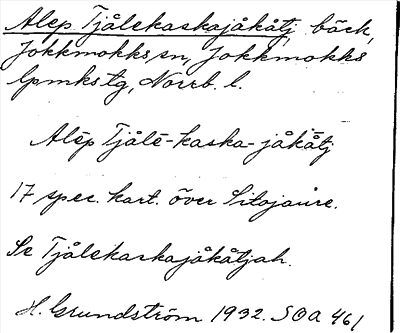 Alep Tjålekaskajåkåtj bäck,
Jokkmokks sn, Jokkmokks
lpmkstg, Norrb. l.
Alēp Tjålē-kaska-jåkåtj
17 spec. kart. över Sitojaure.
Se Tjålekaskajåkåtjah.
H. Grundström 1932. SOA 461